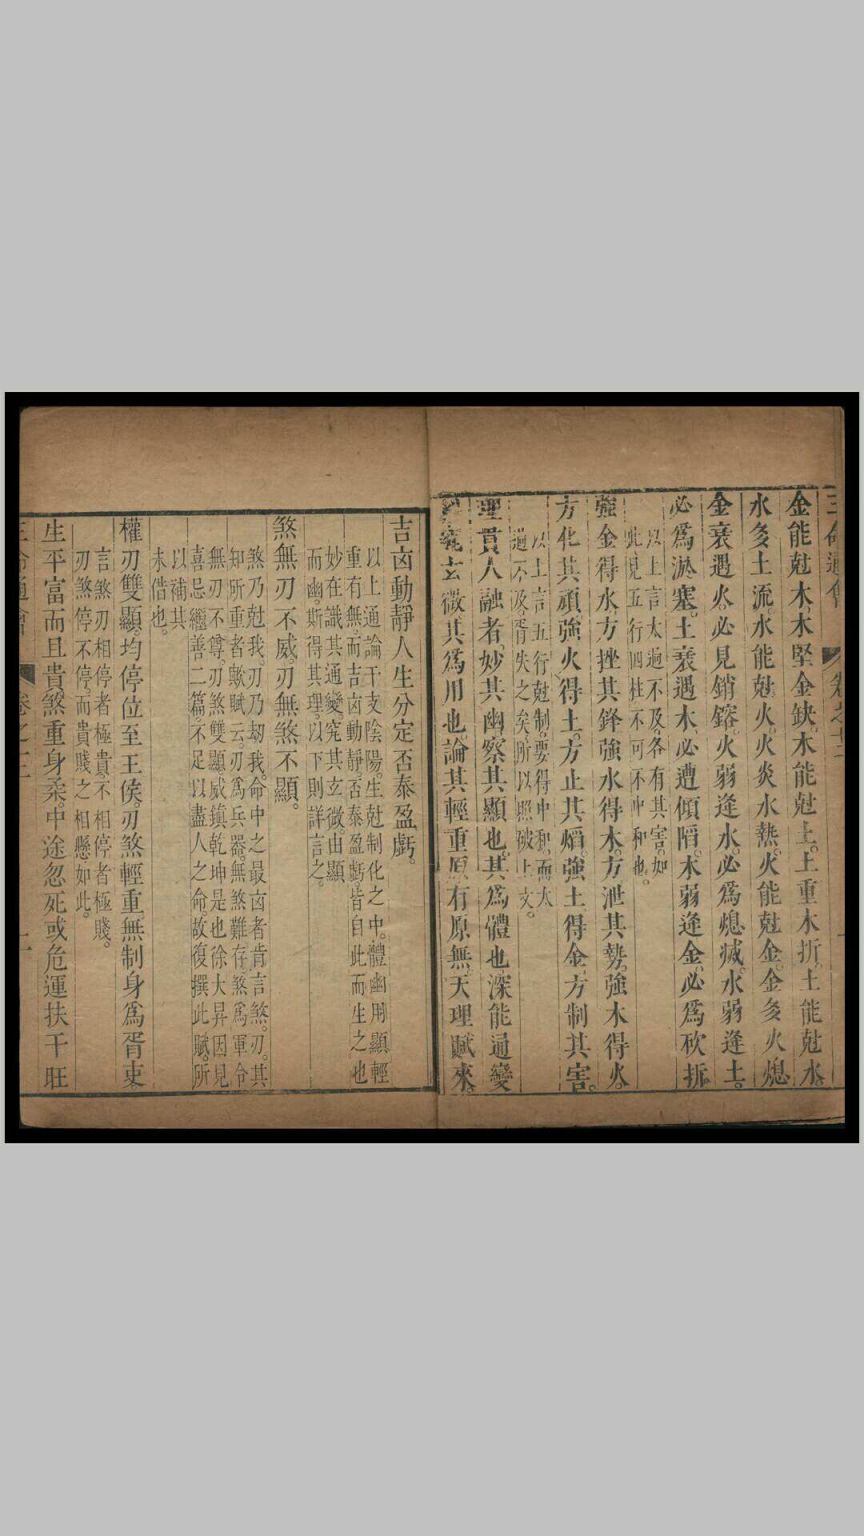 三命通會 卷之十二
金能尅木,木堅金缺,木能尅土,土重木折,土能尅水,
水多土流,水能尅火,火炎水熱,火能尅金,金多火熄,
金衰遇火,必見銷鎔,火弱逢水,必為熄滅,水弱逢土,
必爲淤塞,土衰遇木,必遭傾陷,木弱逢金,必爲砍折,
以上言太過不及,各有其害,如
此見五行四柱不可不中和也。
強金得水,方挫其鋒,強水得木,方泄其勢,強木得火,
方化其頑,強火得土,方止其熖,強土得金,方制其害。
以上言五行尅制,要得中和,而太
過不及,胥失之矣,所以照破上文。
理貫人融者,妙其幽,察其顯也,其爲體也,深能通變,
玄微,其爲用也,論其輕重,原有原無,天理賦來,
吉凶動靜,人生分定,否泰盈虧。
以上通論干支陰陽,生尅制化之中,體幽用顯,輕
重有無,而吉凶動靜,否泰盈虧,皆自此而生之也
妙在識其通變,究其玄微,由顯
而幽,斯得其理,以下則詳言之。
煞無刃不威,刃無煞不顯。
煞乃尅我,刃乃刼我,命中之最凶者,肯言煞刃,其
知所重者歟,賦云,刃爲兵器,無煞難存,煞爲軍令
無刃不尊,刃煞雙顯,威鎮乾坤是也,徐大昇因見
喜忌繼善二篇,不足以盡人之命,故復撰此賦,所
以補其
未偹也。
權刃雙顯,均停位至王侯,刃煞輕重,無制身爲胥吏,
言煞刃相停者極貴,不相停者極賤。
刃煞停不停,而貴賤之相懸如此。
生平富而且貴,煞重身柔,中途忽死或危,運扶干旺
三命通會 卷之十二 十一